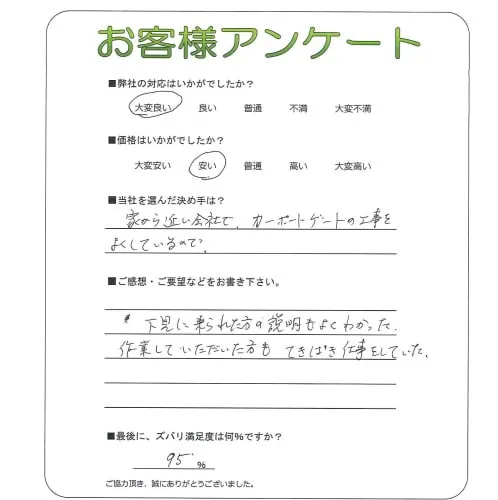 お客様アンケート
■弊社の対応はいかがでしたか？
大変良い 良い 普通 不満 大変不満
■価格はいかがでしたか？
大変安い 安い 普通 高い 大変高い
■当社を選んだ決め手は？
家から近い会社で、カーポートゲートの工事を
よくしているので。
■ご感想・ご要望などをお書き下さい。
下見に来られた方の説明もよくわかった．
作業していただいた方も てきぱき仕事をしていた。
■最後に、ズバリ満足度は何％ですか？
95 ％
ご協力頂き、誠にありがとうございました。